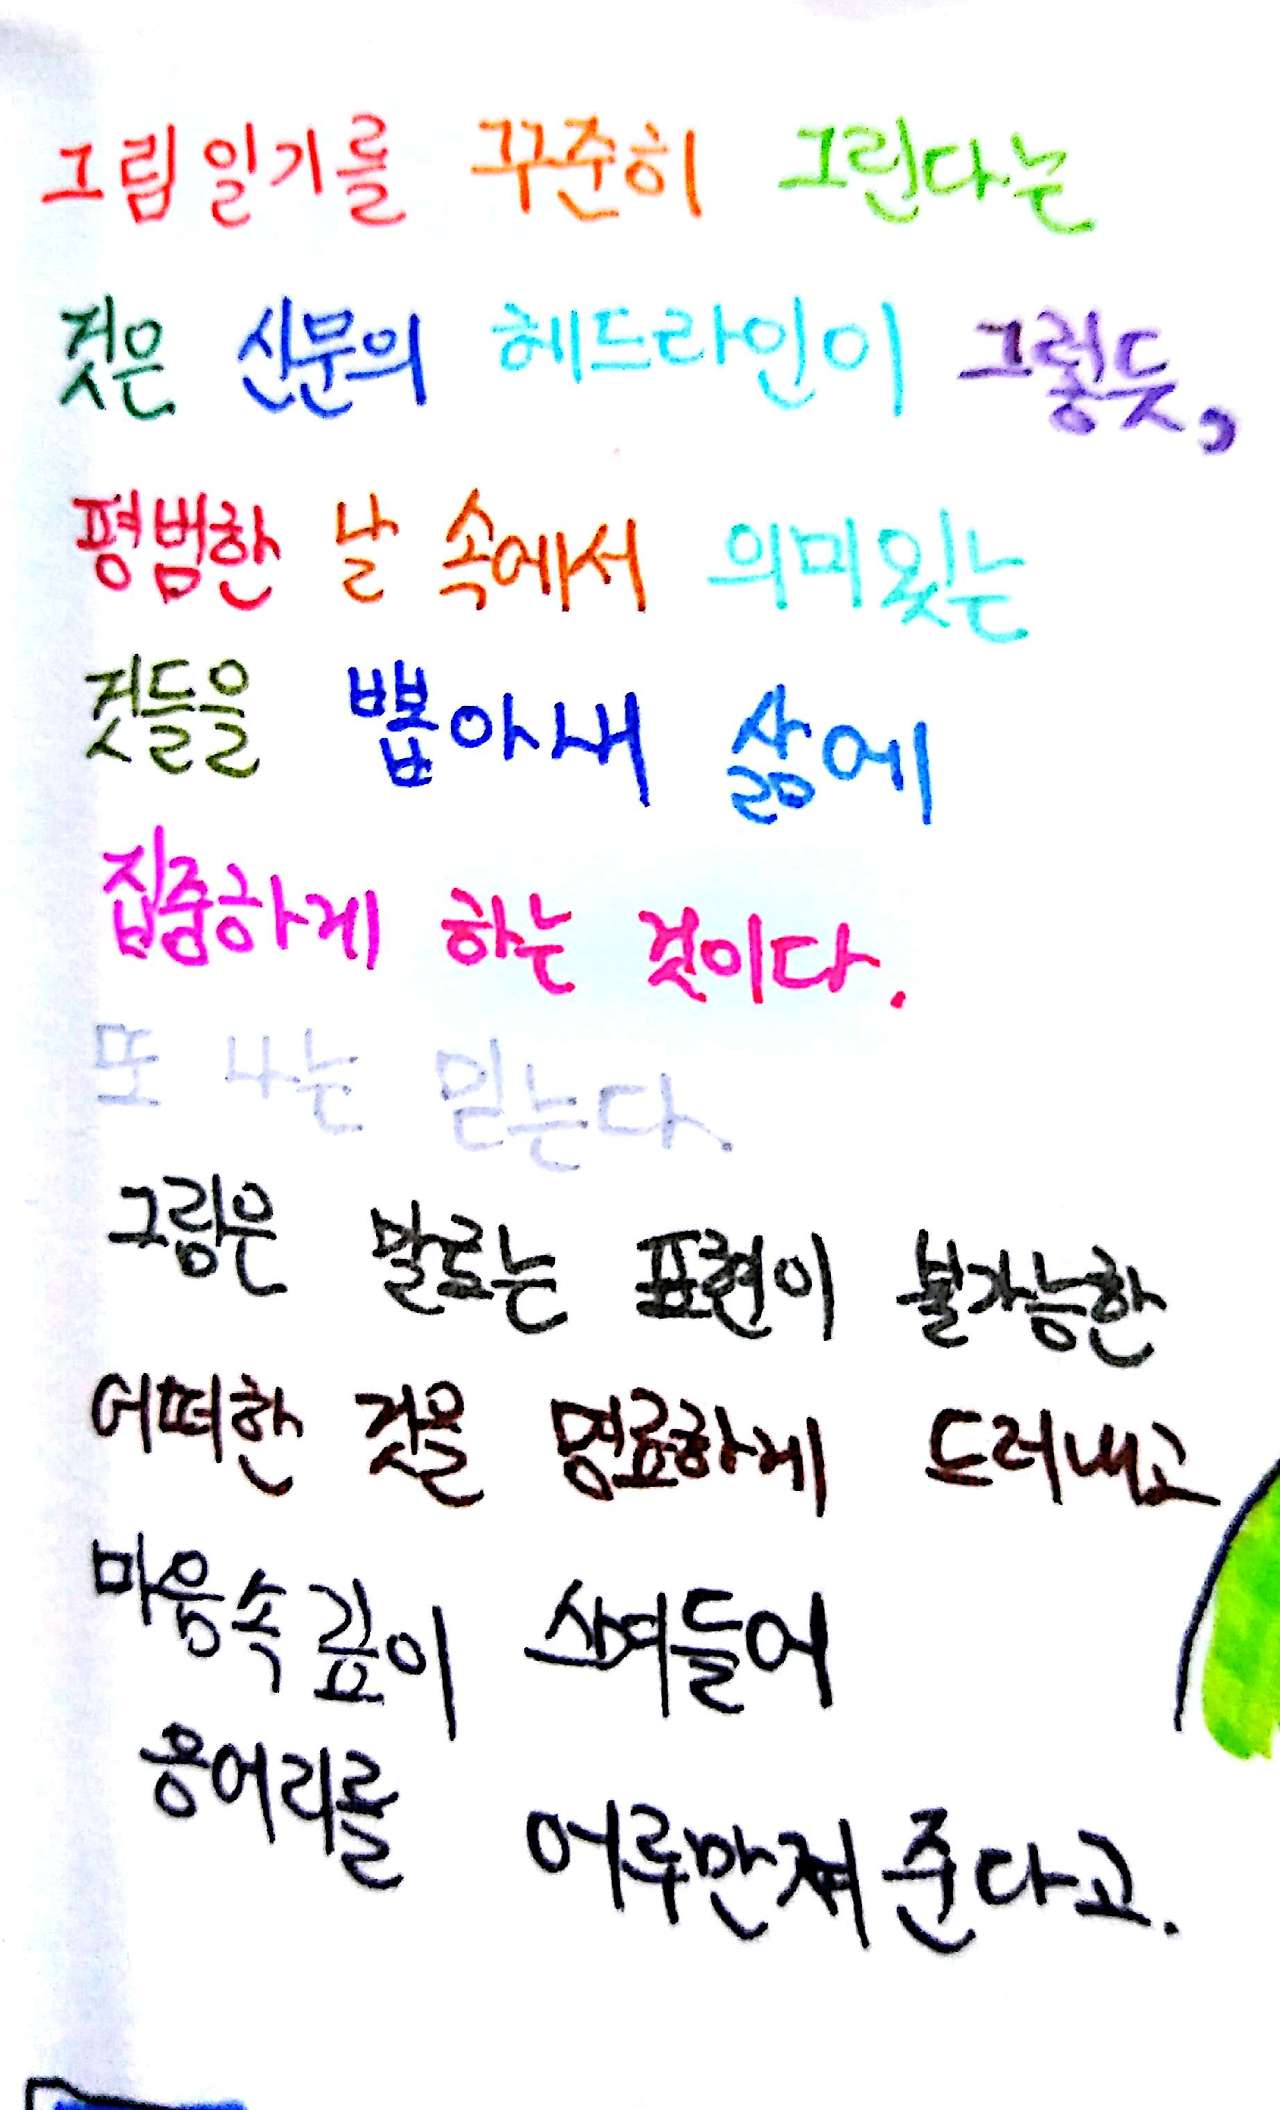 그림일기를 꾸준히 그린다는
것은 신문의 헤드라인이 그렇듯,
평범한 날 속에서 의미있는
것들을 뽑아내 삶에
집중하게 하는 것이다.
또 나는 믿는다.
그림은 말로는 표현이 불가능한
어떠한 것을 명료하게 드러내고
마음속 깊이 스며들어
응어리를 어루만져 준다고.